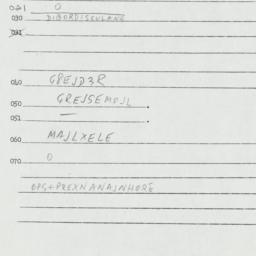 021 0
030 DIBORDISEULENE
031
040 GREJDER
050 GREJSEMPJL
051 —
060 MAJLXELE
070 0
OPS+PREXNANAJNHORE